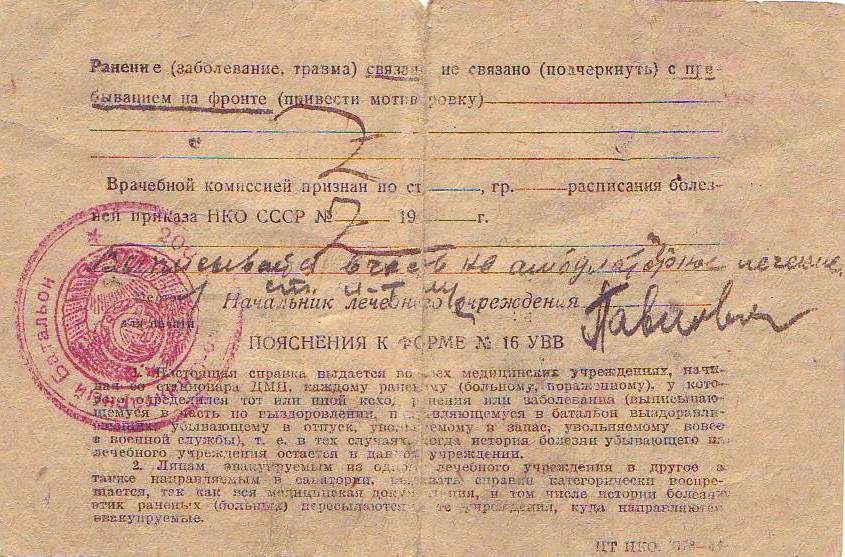 Ранение (заболевание, травма) связано не связано (подчеркнуть) с пре-
быванием на фронте (привести мотивировку)
Врачебной комиссией признан по ст. , гр. расписания болез-
ней приказа НКО СССР № 19 г.
Выписывается в часть на амбулаторное лечение
Начальник лечебного учреждения
для печати
ПОЯСНЕНИЯ К ФОРМЕ № 16 УВВ
1. Настоящая справка выдается во всех медицинских учреждениях, начи-
ная со стационара ДМП, каждому раненому (больному, пораженному), у кото-
рого определился тот или иной исход ранения или заболевания (выписываю-
щемуся в часть по выздоровлении, направляющемуся в батальон выздоравли-
вающих, убывающему в отпуск, увольняемому в запас, увольняемому вовсе
с военной службы), т. е. в тех случаях, когда история болезни убывающего из
лечебного учреждения остается в данном учреждении.
2. Лицам эвакуируемым из одного лечебного учреждения в другое а
также направляемым в санатории, выдавать справки категорически воспре-
щается, так как вся медицинская документация, в том числе истории болезни
этих раненых (больных) пересылаются в те учреждения, куда направляются
эвакуируемые.
Батальон